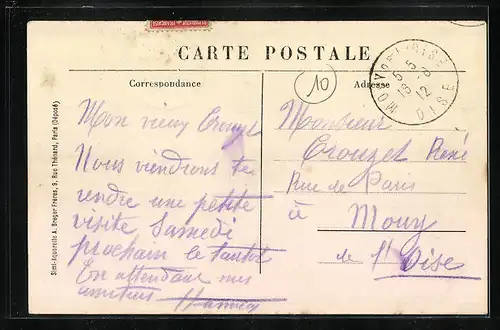 CARTE POSTALE
Correspondance
Mon vieux Crouzet
Nous viendrons te
rendre une petite
visite Samedi
prochain le tantot
En attendant mes
amitiés
10
Adresse
Monsieur
Crouzet René
Rue de Paris
à Mouy
de l'Oise
OISE
5-8
12
Simi-Aquarelle A. Breger Frères, 9, Rue Thénard, Paris (Déposé)